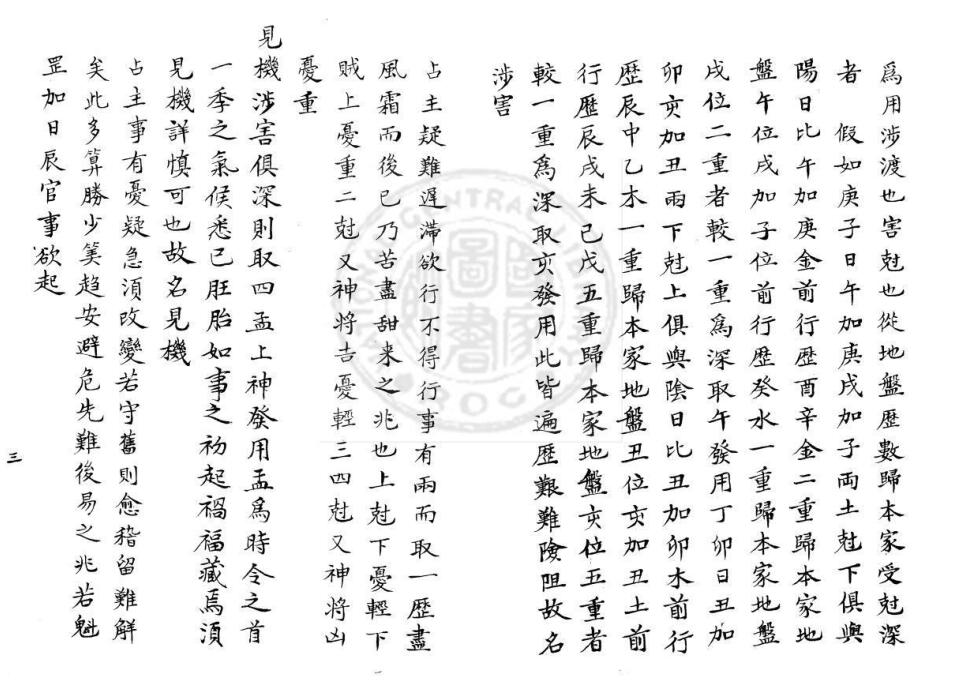 爲用涉渡也害尅也從地盤歷數歸本家受尅深
者　假如庚子日午加庚戌加子両土尅下俱與
陽日比午加庚金前行歷酉辛金二重歸本家地
盤午位戌加子位前行歷癸水一重歸本家地盤
戌位二重者較一重爲深取午發用丁卯日丑加
卯亥加丑兩下尅上俱與陰日比丑加卯木前行
歷辰中乙木一重歸本家地盤丑位亥加丑土前
行歷辰戌未己戊五重歸本家地盤亥位五重者
較一重爲深取亥發用此皆遍歷艱難險阻故名
涉害
占主疑難遲滯欲行不得行事有兩而取一歷盡
風霜而後已乃苦盡甜来之兆也上尅下憂輕下
賊上憂重二尅又神將吉憂輕三四尅又神將凶
憂重
見機涉害俱深則取四孟上神發用孟爲時令之首
一季之氣候悉已胚胎如事之初起禍福藏焉須
見機詳慎可也故名見機
占主事有憂疑急須改變若守舊則愈稽留難解
矣此多算勝少筭趋安避危先難後易之兆若魁
罡加日辰官事欲起
三